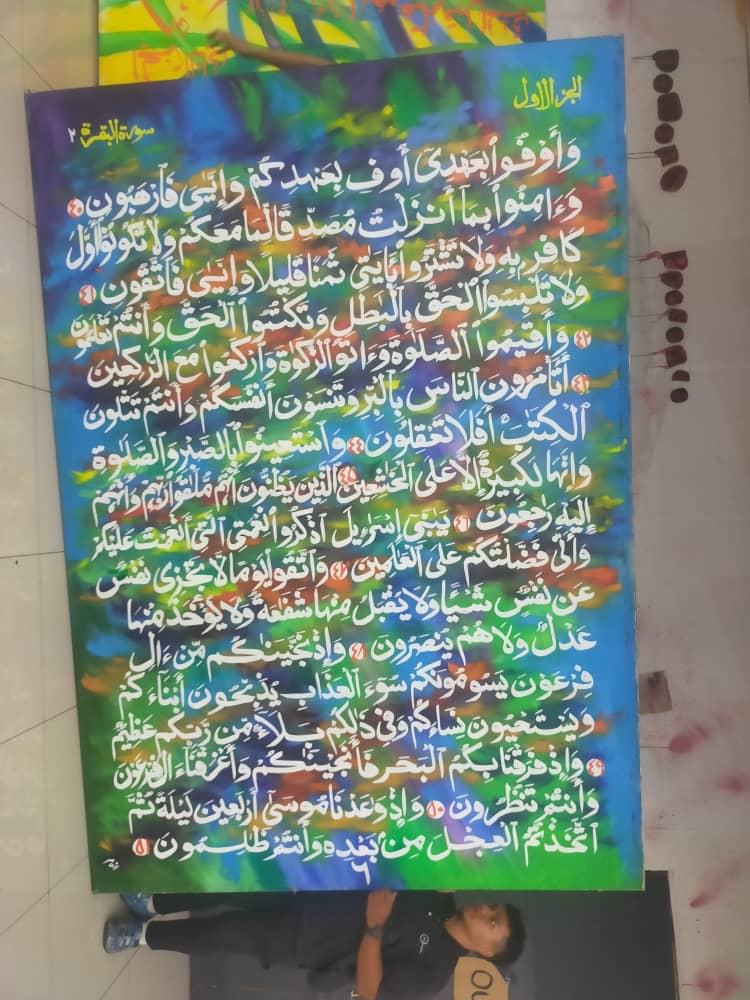 الجزء الأول
سورة البقرة ٢
وَأَوْفُوا۟ بِعَهْدِىٓ أُوفِ بِعَهْدِكُمْ وَإِيَّٰىَ فَٱرْهَبُونِ ٤٠
وَءَامِنُوا۟ بِمَآ أَنزَلْتُ مُصَدِّقًا لِّمَا مَعَكُمْ وَلَا تَكُونُوٓا۟ أَوَّلَ
كَافِرٍۭ بِهِۦ وَلَا تَشْتَرُوا۟ بِـَٔايَٰتِى ثَمَنًا قَلِيلًا وَإِيَّٰىَ فَٱتَّقُونِ ٤١
وَلَا تَلْبِسُوا۟ ٱلْحَقَّ بِٱلْبَٰطِلِ وَتَكْتُمُوا۟ ٱلْحَقَّ وَأَنتُمْ تَعْلَمُونَ
٤٢ وَأَقِيمُوا۟ ٱلصَّلَوٰةَ وَءَاتُوا۟ ٱلزَّكَوٰةَ وَٱرْكَعُوا۟ مَعَ ٱلرَّٰكِعِينَ
٤٣ أَتَأْمُرُونَ ٱلنَّاسَ بِٱلْبِرِّ وَتَنسَوْنَ أَنفُسَكُمْ وَأَنتُمْ تَتْلُونَ
ٱلْكِتَٰبَ أَفَلَا تَعْقِلُونَ ٤٤ وَٱسْتَعِينُوا۟ بِٱلصَّبْرِ وَٱلصَّلَوٰةِ
وَإِنَّهَا لَكَبِيرَةٌ إِلَّا عَلَى ٱلْخَٰشِعِينَ ٤٥ ٱلَّذِينَ يَظُنُّونَ أَنَّهُم مُّلَٰقُوا۟ رَبِّهِمْ وَأَنَّهُمْ
إِلَيْهِ رَٰجِعُونَ ٤٦ يَٰبَنِىٓ إِسْرَٰٓءِيلَ ٱذْكُرُوا۟ نِعْمَتِىَ ٱلَّتِىٓ أَنْعَمْتُ عَلَيْكُمْ
وَأَنِّى فَضَّلْتُكُمْ عَلَى ٱلْعَٰلَمِينَ ٤٧ وَٱتَّقُوا۟ يَوْمًا لَّا تَجْزِى نَفْسٌ
عَن نَّفْسٍ شَيْـًٔا وَلَا يُقْبَلُ مِنْهَا شَفَٰعَةٌ وَلَا يُؤْخَذُ مِنْهَا
عَدْلٌ وَلَا هُمْ يُنصَرُونَ ٤٨ وَإِذْ نَجَّيْنَٰكُم مِّنْ ءَالِ
فِرْعَوْنَ يَسُومُونَكُمْ سُوٓءَ ٱلْعَذَابِ يُذَبِّحُونَ أَبْنَآءَكُمْ
وَيَسْتَحْيُونَ نِسَآءَكُمْ وَفِى ذَٰلِكُم بَلَآءٌ مِّن رَّبِّكُمْ عَظِيمٌ
٤٩ وَإِذْ فَرَقْنَا بِكُمُ ٱلْبَحْرَ فَأَنجَيْنَٰكُمْ وَأَغْرَقْنَآ ءَالَ فِرْعَوْنَ
وَأَنتُمْ تَنظُرُونَ ٥٠ وَإِذْ وَٰعَدْنَا مُوسَىٰٓ أَرْبَعِينَ لَيْلَةً ثُمَّ
ٱتَّخَذْتُمُ ٱلْعِجْلَ مِنۢ بَعْدِهِۦ وَأَنتُمْ ظَٰلِمُونَ ٥١
٦